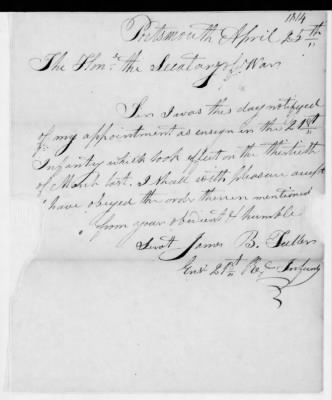 1814
Portsmouth April 25th
The Honl. the Secatary of War
Sir I was this day notified
of my appointment as ensign in the 21st
Infantry which took effect on the thirtieth
of March last. I shall with pleasure accept
have obeyed the order therein mentioned
from your obedient & humble
Servt James B. Tuller
Ens. 21st Reg Infanty